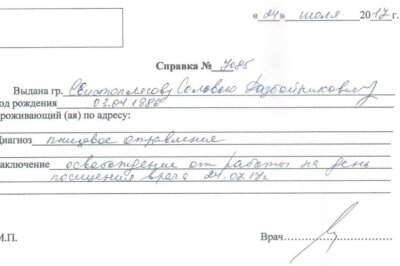 « 24 » июля 2017г.
Справка № 7085
Выдана гр. Свистоплясову Соловью Разбойниковичу
од рождения 03.04 1986
роживающий (ая) по адресу:
Диагноз пищевое отравление
аключение освобождение от работы на день
посещения врача 24.07.17г.
И.П. Врач